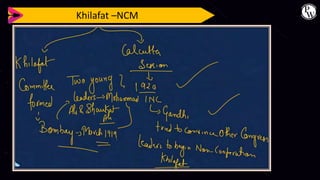 Khilafat –NCM
Khilafat
Committee
formed
Bombay → March 1919
Two young
leaders → Mohammad
Ali & Shaukat
Ali
Calcutta
Session
1920
INC
→ Gandhi
tried to convince other Congress
leaders to begin Non-Cooperation
Khilafat